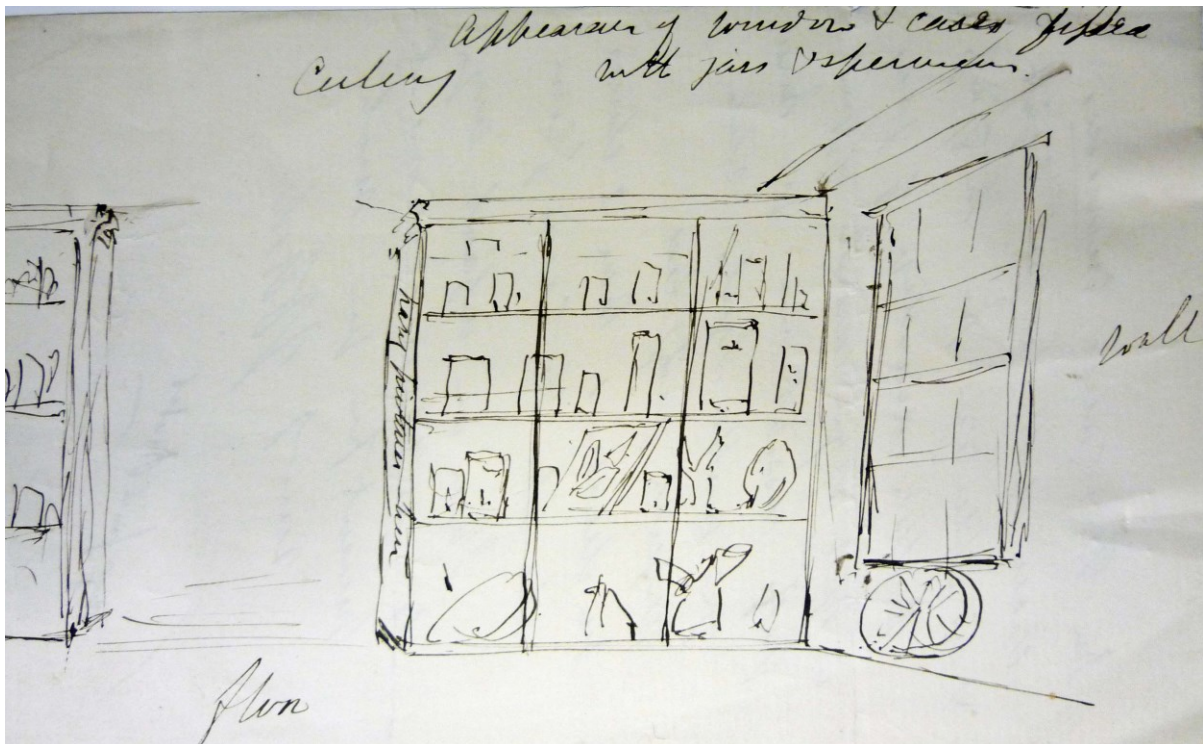 Appearance of window & cases
with jars & specimens.
Ceiling
hang pictures here
wall
floor